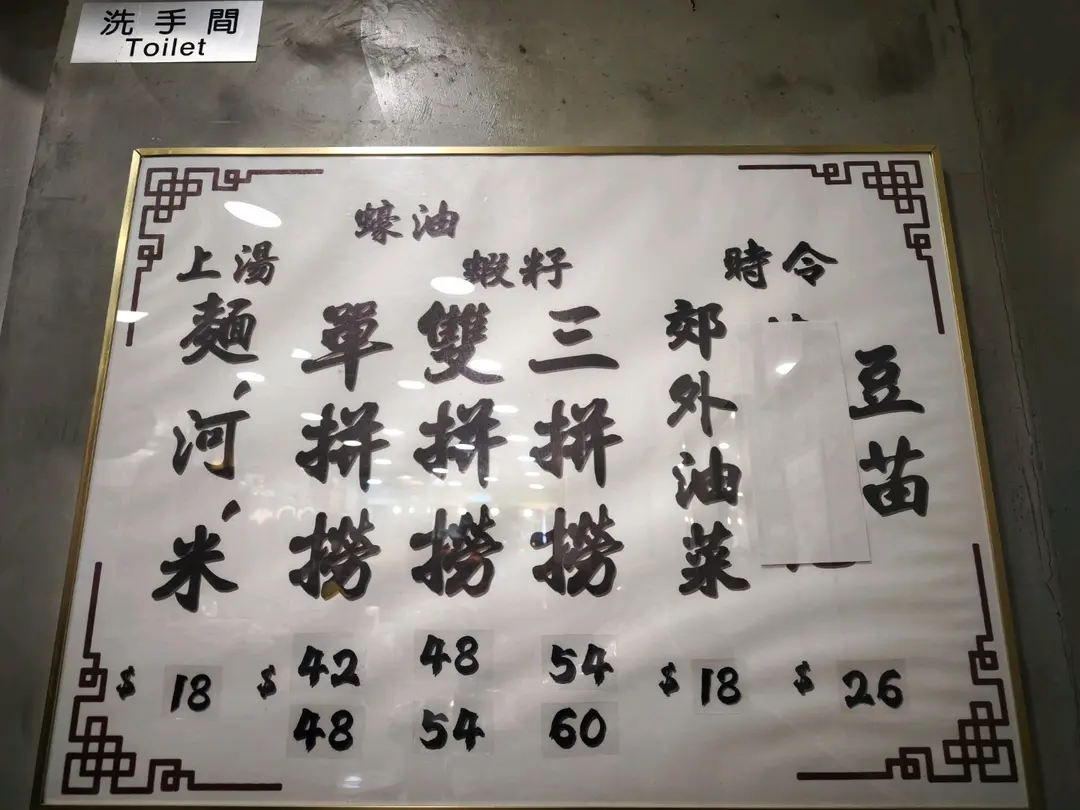 洗手間
Toilet
蠔油
上湯
蝦籽
時令
麵、河、米
單拼撈
雙拼撈
三拼撈
郊外油菜
豆苗
$ 18
$ 42
48
48
54
54
60
$ 18
$ 26